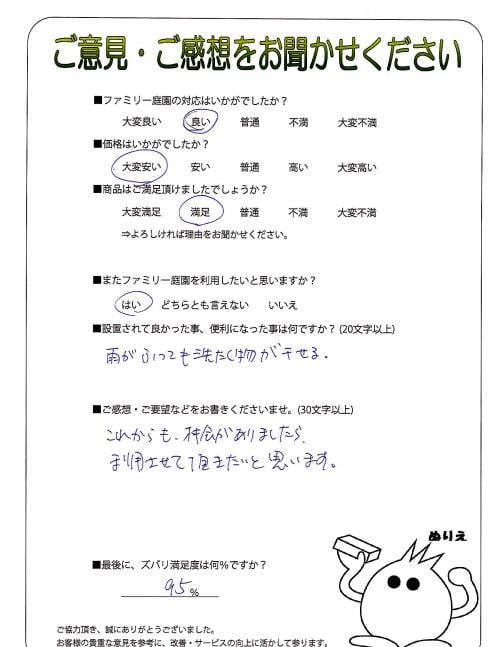 ご意見・ご感想をお聞かせください
■ファミリー庭園の対応はいかがでしたか？
大変良い 良い 普通 不満 大変不満
■価格はいかがでしたか？
大変安い 安い 普通 高い 大変高い
■商品はご満足頂けましたでしょうか？
大変満足 満足 普通 不満 大変不満
⇒よろしければ理由をお聞かせください。
■またファミリー庭園を利用したいと思いますか？
はい どちらとも言えない いいえ
■設置されて良かった事、便利になった事は何ですか？(20文字以上)
雨がふっても洗たく物が干せる.
■ご感想・ご要望などをお書きくださいませ。(30文字以上)
これからも、機会がありましたら、
利用させて頂きたいと思います。
ぬりえ
■最後に、ズバリ満足度は何％ですか？
95％
ご協力頂き、誠にありがとうございました。
お客様の貴重な意見を参考に、改善・サービスの向上に活かして参ります。